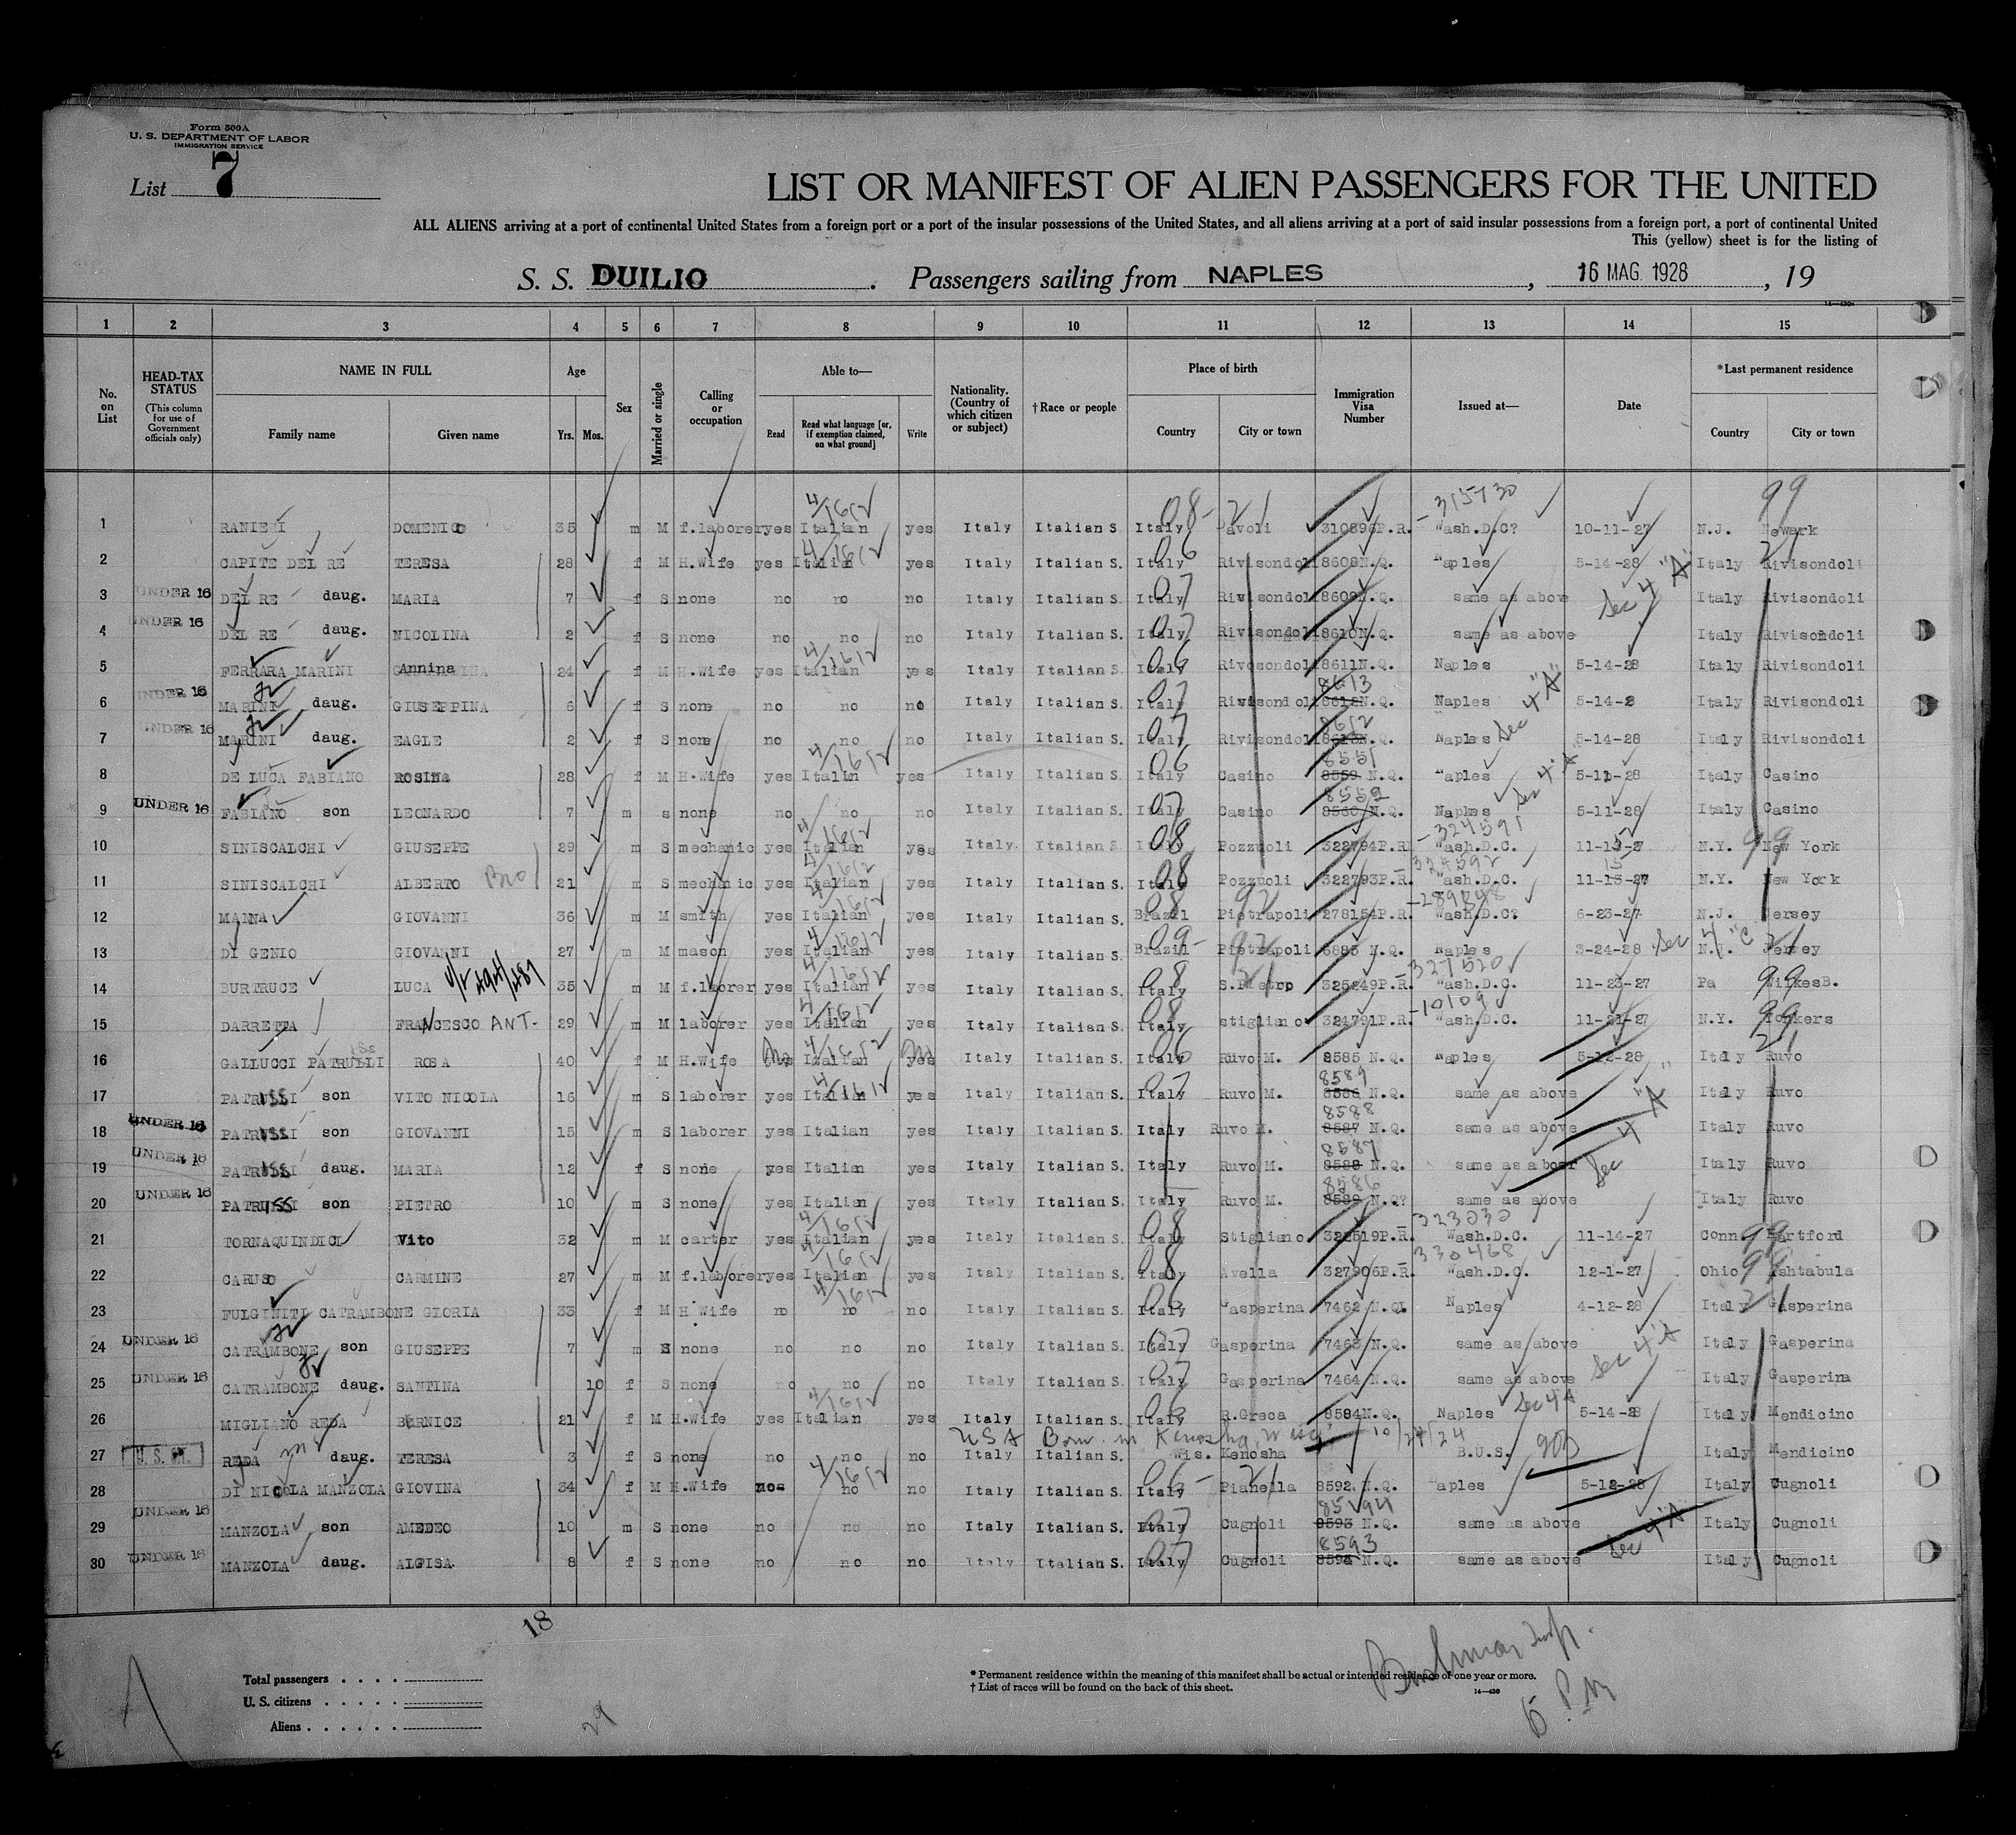 Form 500A
U. S. DEPARTMENT OF LABOR
IMMIGRATION SERVICE
List 7
LIST OR MANIFEST OF ALIEN PASSENGERS FOR THE UNITED
ALL ALIENS arriving at a port of continental United States from a foreign port or a port of the insular possessions of the United States, and all aliens arriving at a port of said insular possessions from a foreign port, a port of continental United
This (yellow) sheet is for the listing of
S. S. DUILIO . Passengers sailing from NAPLES , 16 MAG. 1928 , 19
1 2 3 4 5 6 7 8 9 10 11 12 13 14 15
No. on List HEAD-TAX STATUS (This column for use of Government officials only) NAME IN FULL Family name Given name Age Yrs. Mos. Sex Married or single Calling or occupation Able to— Read Read what language [or, if exemption claimed, on what ground] Write Nationality. (Country of which citizen or subject) †Race or people Place of birth Country City or town Immigration Visa Number Issued at— Date *Last permanent residence Country City or town
1 RANIERI DOMENICO 35 m M f.laborer yes Italian yes Italy Italian S. Italy Davoli 310896P.R. Wash.D.C? 10-11-27 N.J. Newark
2 CAPITE DEL RE TERESA 28 f M H.Wife yes Italian yes Italy Italian S. Italy Rivisondoli 8608N.Q. Naples 5-14-28 Italy Rivisondoli
3 UNDER 16 DEL RE daug. MARIA 7 f S none no no no Italy Italian S. Italy Rivisondoli 8609N.Q. same as above Sec 4 "A" Italy Rivisondoli
4 UNDER 16 DEL RE daug. NICOLINA 2 f S none no no no Italy Italian S. Italy Rivisondoli 8610N.Q. same as above Italy Rivisondoli
5 FERRARA MARINI Annina 24 f M H.Wife yes Italian yes Italy Italian S. Italy Rivosondoli 8611N.Q. Naples 5-14-28 Italy Rivisondoli
6 UNDER 16 MARINI daug. GIUSEPPINA 6 f S none no no no Italy Italian S. Italy Rivisondoli 8613 N.Q. Naples 5-14-28 Italy Rivisondoli
7 UNDER 16 MARINI daug. EAGLE 2 f S none no no no Italy Italian S. Italy Rivisondoli 8612 N.Q. Naples Sec 4 "A" 5-14-28 Italy Rivisondoli
8 DE LUCA FABIANO ROSINA 28 f M H.Wife yes Italin yes Italy Italian S. Italy Casino 8551 8559 N.Q. Naples 5-11-28 Italy Casino
9 UNDER 16 FABIANO son LEONARDO 7 m s none no no no Italy Italian S. Italy Casino 8559 8560 N.Q. Naples Sec 4 "A" 5-11-28 Italy Casino
10 SINISCALCHI GIUSEPPE 29 m S mechanic yes Italian yes Italy Italian S. Italy Pozzuoli 322794P.R. 324591 Wash.D.C. 11-15-27 N.Y. New York
11 SINISCALCHI ALBERTO Bro 21 m S mechanic yes Italian yes Italy Italian S. Italy Pozzuoli 322793P.R. 324592 Wash.D.C. 11-15-27 N.Y. New York
12 MANNA GIOVANNI 36 m M smith yes Italian yes Italy Italian S. Brazil Pietrapoli 278154P.R. Wash.D.C? 6-23-27 N.J. Jersey
13 DI GENIO GIOVANNI 27 m M mason yes Italian yes Italy Italian S. Brazil Pietrapoli 6885 N.Q. Naples 3-24-28 Sec 4 "C" N.J. Jersey
14 BURTRUCE LUCA 35 m M f.laborer yes Italian yes Italy Italian S. Italy S.Pietro 325249P.R. 327520 Wash.D.C. 11-23-27 Pa WilkesB.
15 DARRETTA FRANCESCO ANT. 29 m M laborer yes Italian yes Italy Italian S. Italy stigliano 324791P.R. Wash.D.C. 11-21-27 N.Y. Yonkers
16 GALLUCCI PATRULLI ROSA 40 f M H.Wife Italian yes Italy Italian S. Italy Ruvo M. 8585 N.Q. Naples 5-12-28 Italy Ruvo
17 PATRUSSI son VITO NICOLA 16 m S laborer yes Italian yes Italy Italian S. Italy Ruvo M. 8589 8586 N.Q. same as above Italy Ruvo
18 UNDER 16 PATRUSSI son GIOVANNI 15 m S laborer yes Italian yes Italy Italian S. Italy Ruvo M. 8588 8587 N.Q. same as above Italy Ruvo
19 UNDER 16 PATRUSSI daug. MARIA 12 f S none yes Italian yes Italy Italian S. Italy Ruvo M. 8587 8588 N.Q. same as above Sec 4 "A" Italy Ruvo
20 UNDER 16 PATRUSSI son PIETRO 10 m S none yes Italian yes Italy Italian S. Italy Ruvo M. 8586 8589 N.Q? same as above Italy Ruvo
21 TORNAQUINDICI Vito 32 m M carter yes Italian yes Italy Italian S. Italy Stigliano 322519P.R. 323030 Wash.D.C. 11-14-27 Conn Hartford
22 CARUSO CARMINE 27 m M f.laborer yes Italian yes Italy Italian S. Italy Avella 327906P.R. 330468 Wash.D.C. 12-1-27 Ohio Ashtabula
23 FULGINITI CATRAMBONE GLORIA 33 f M H.Wife no no no Italy Italian S. Italy Gasperina 7462 N.Q. Naples 4-12-28 Italy Gasperina
24 UNDER 16 CATRAMBONE son GIUSEPPE 7 m S none no no no Italy Italian S. Italy Gasperina 7463 N.Q. same as above Sec 4 "A" Italy Gasperina
25 UNDER 16 CATRAMBONE daug. SANTINA 10 f S none no no no Italy Italian S. Italy Gasperina 7464 N.Q. same as above Italy Gasperina
26 MIGLIANO REDA BERNICE 21 f M H.Wife yes Italian yes Italy Italian S. Italy R.Greca 8584N.Q. Naples Sec 4 A 5-14-28 Italy Mendicino
USA Born in Kenosha, Wisc. 10/29/24
27 REDA daug. TERESA 3 f S none no no no Italy Italian S. Wis. Kenosha B.U.S. Italy Mendicino
28 DI NICOLA MANZOLA GIOVINA 34 f M H.Wife no no Italy Italian S. Italy Pianella 8592 N.Q. Naples 5-12-28 Italy Cugnoli
29 UNDER 16 MANZOLA son AMEDEO 10 m S none no no no Italy Italian S. Italy Cugnoli 8594 8593 N.Q. same as above Italy Cugnoli
30 UNDER 16 MANZOLA daug. ALGISA 8 f S none no no no Italy Italian S. Italy Cugnoli 8593 8594 N.Q. same as above Sec 4 "A" Italy Cugnoli
18
Total passengers
U. S. citizens
Aliens
29
* Permanent residence within the meaning of this manifest shall be actual or intended residence of one year or more.
† List of races will be found on the back of this sheet.